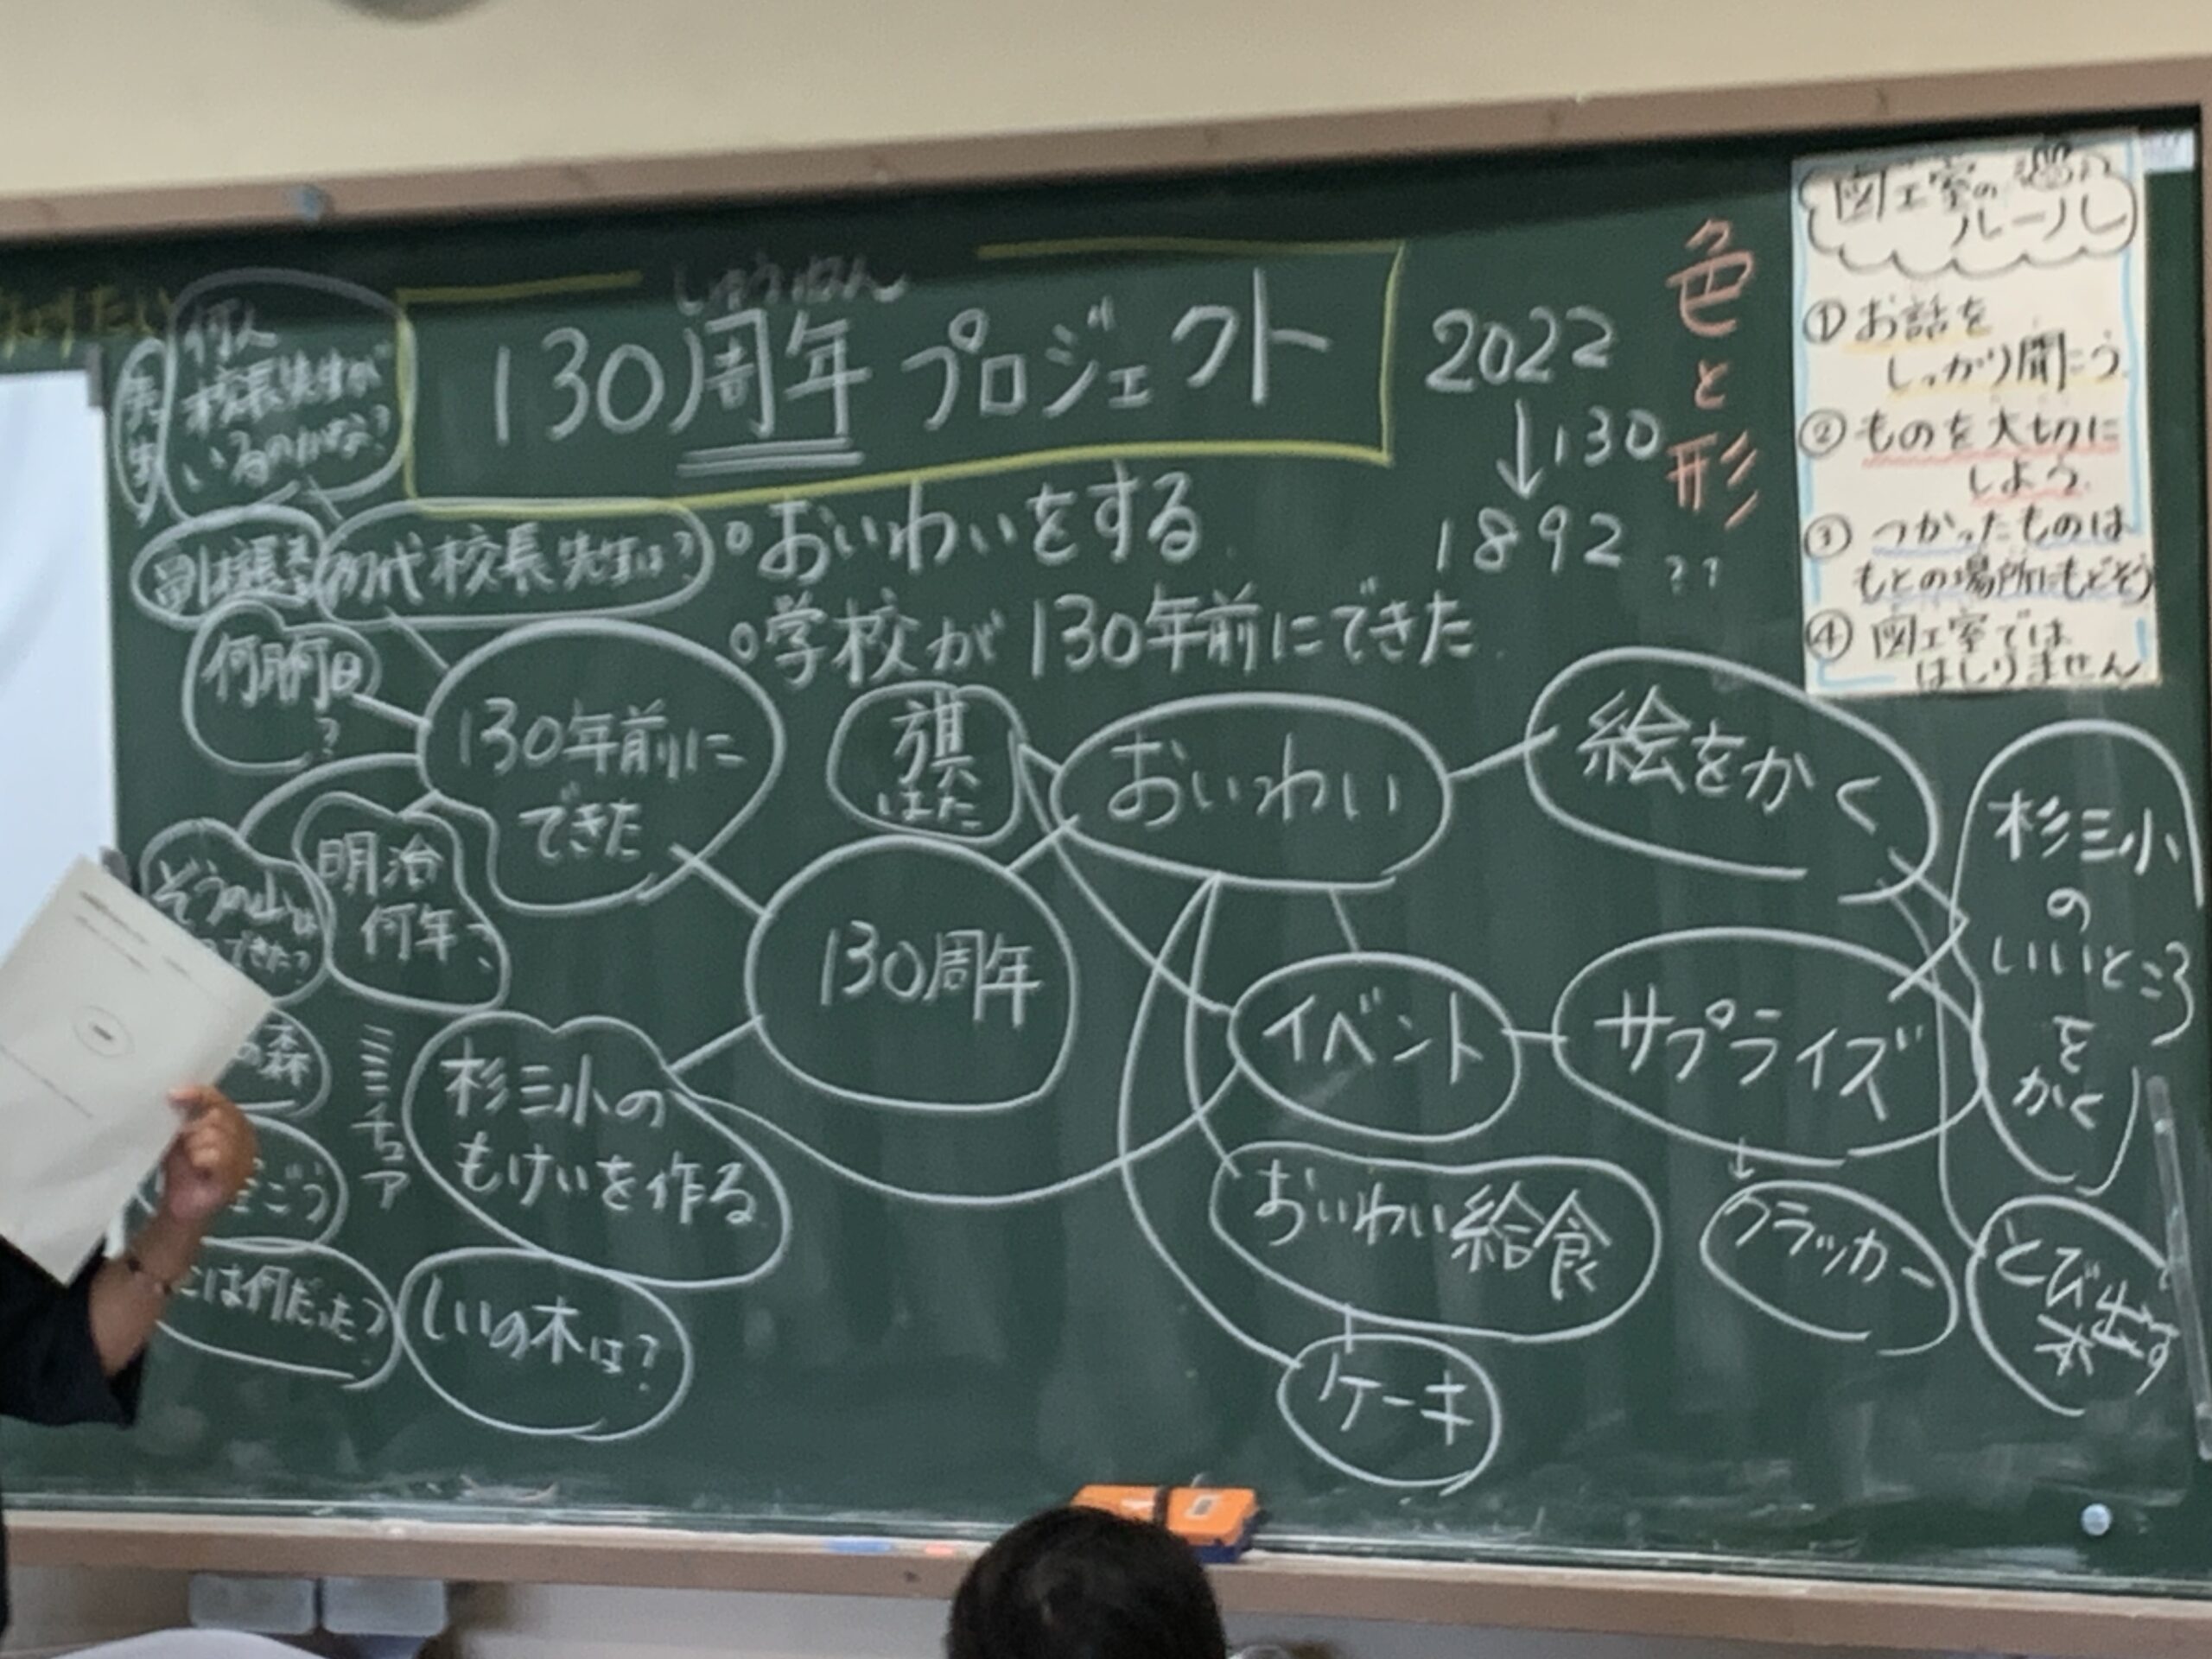 しゅうねん
130周年 プロジェクト
2022
↓130
1892 ??
色と形
図工室の
ルール
① お話を
しっかり聞こう
② ものを大切に
しよう
③ つかったものは
もとの場所にもどそう
④ 図工室では
はしりません
。おいわいをする
。学校が130年前にできた
何人
校長先生が
いるのかな?
先生
副校長
初代校長先生は?
何月何日
?
130年前に
できた
明治
何年?
ぞうの山は
できた?
森
ミニチュア
杉三小の
もけいを作る
ごう
は何だった?
しいの木は?
130周年
旗
はた
おいわい
絵をかく
杉三小
の
いいところ
を
かく
イベント
サプライズ
↓
クラッカー
おいわい給食
ケーキ
とび出す